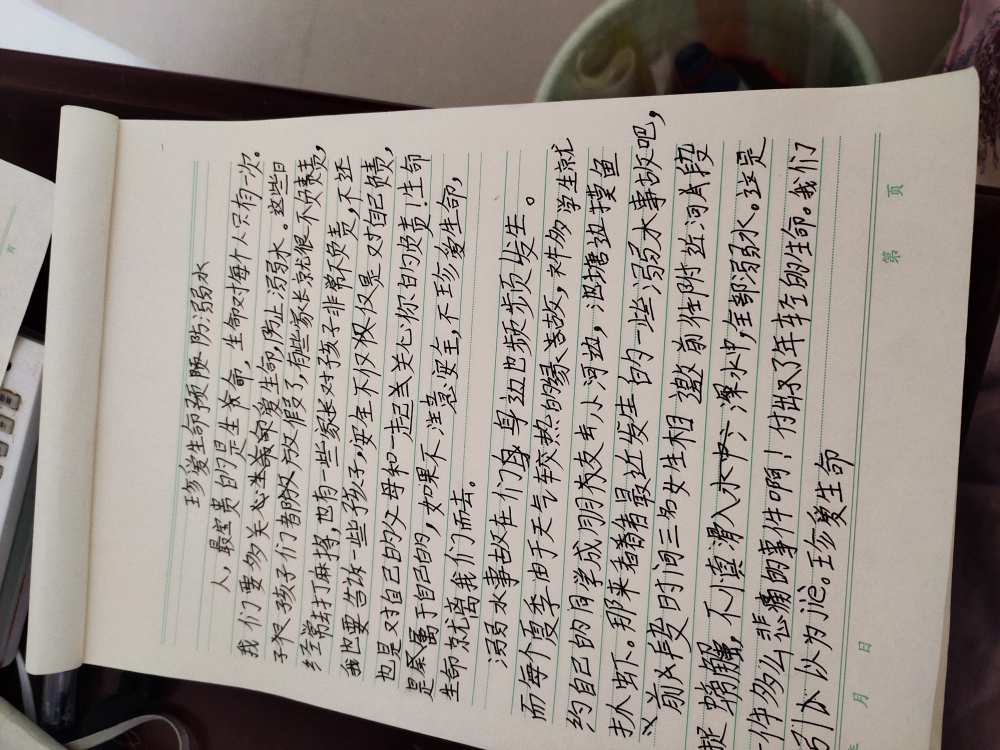 珍爱生命预防溺水
人,最宝贵的是生命,生命对每个人只有一次。
我们要多关心生命,爱生命,防止溺水。这些日
子银孩子们都放假了,有些家长就很不负责责,
经常打麻将,也有一些家长对孩子非常不负责,不
我也要告诉一些孩子,安全不仅仅是对自己负责,
也是对自己的父母和一起关心你的负责!生命
是属于自己的,如果不注意安全,不珍爱生命,
生命就离我们而去。
溺水事故在们身边也频频发生。
而每个夏季由于天气较热的缘故,许多学生就
约自己的同学或朋友去小河边,池塘边摸鱼
抹虾。那来看看最近发生的一些溺水事故吧,
前段的时间三名女生相邀前往附近河段
捉螃蟹,不慎滑入水中,深水中,全部溺水。这是
件多么悲痛的事件啊!付出了年轻的生命。我们
引以为戒。珍爱生命
第 页
月 日
页